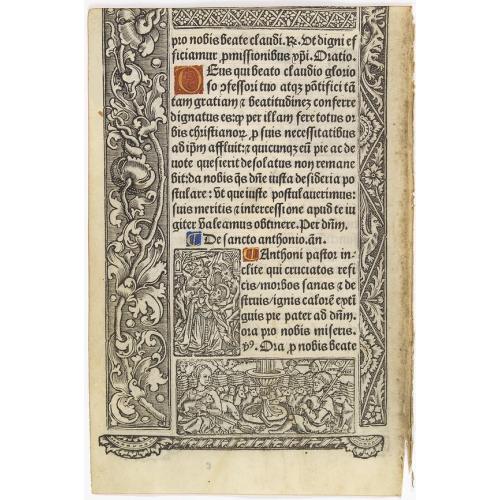 pro nobis beate claudi. R. Ut digni ef
ficiamur ꝓmissionibus xp̄i. Oratio.
Deus qui beato claudio glorio
so ꝯfessori tuo atqȝ põtifici tã
tam gratiam ⁊ beatitudinez conferre
dignatus es: ꝙ per illam fere totus or
bis christianoꝝ ꝓ suis necessitatibus
ad ip̄m affluit: ⁊ quicunqȝ eũ pie ac de
uote quesierit desolatus non remane
bit: da nobis q̄s dñe iusta desideria po
stulare: vt que iuste postulauerimus:
suis meritis ⁊ intercessione apud te iu
giter valeamus obtinere. Per dñm.
De sancto anthonio. añ.
Anthoni pastor in⸗
clite qui cruciatos refi
cis/morbos sanas ⁊ de
struis/ignis calorē exti
guis pie pater ad dñm.
ora pro nobis miseris.
℣. Ora ꝓ nobis beate